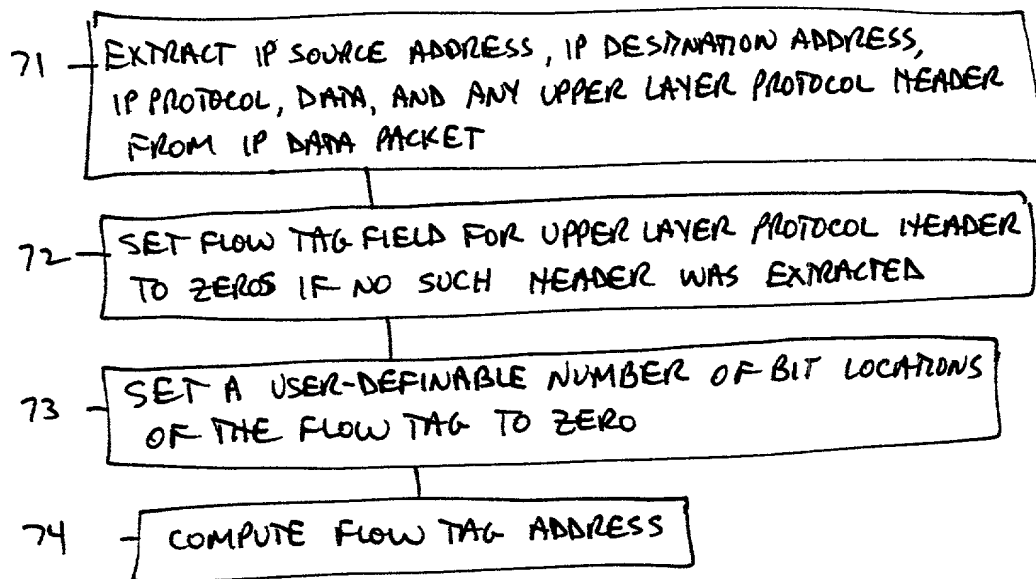 71 EXTRACT IP SOURCE ADDRESS, IP DESTINATION ADDRESS,
IP PROTOCOL, DATA, AND ANY UPPER LAYER PROTOCOL HEADER
FROM IP DATA PACKET
72 SET FLOW TAG FIELD FOR UPPER LAYER PROTOCOL HEADER
TO ZEROS IF NO SUCH HEADER WAS EXTRACTED
73 SET A USER-DEFINABLE NUMBER OF BIT LOCATIONS
OF THE FLOW TAG TO ZERO
74 COMPUTE FLOW TAG ADDRESS